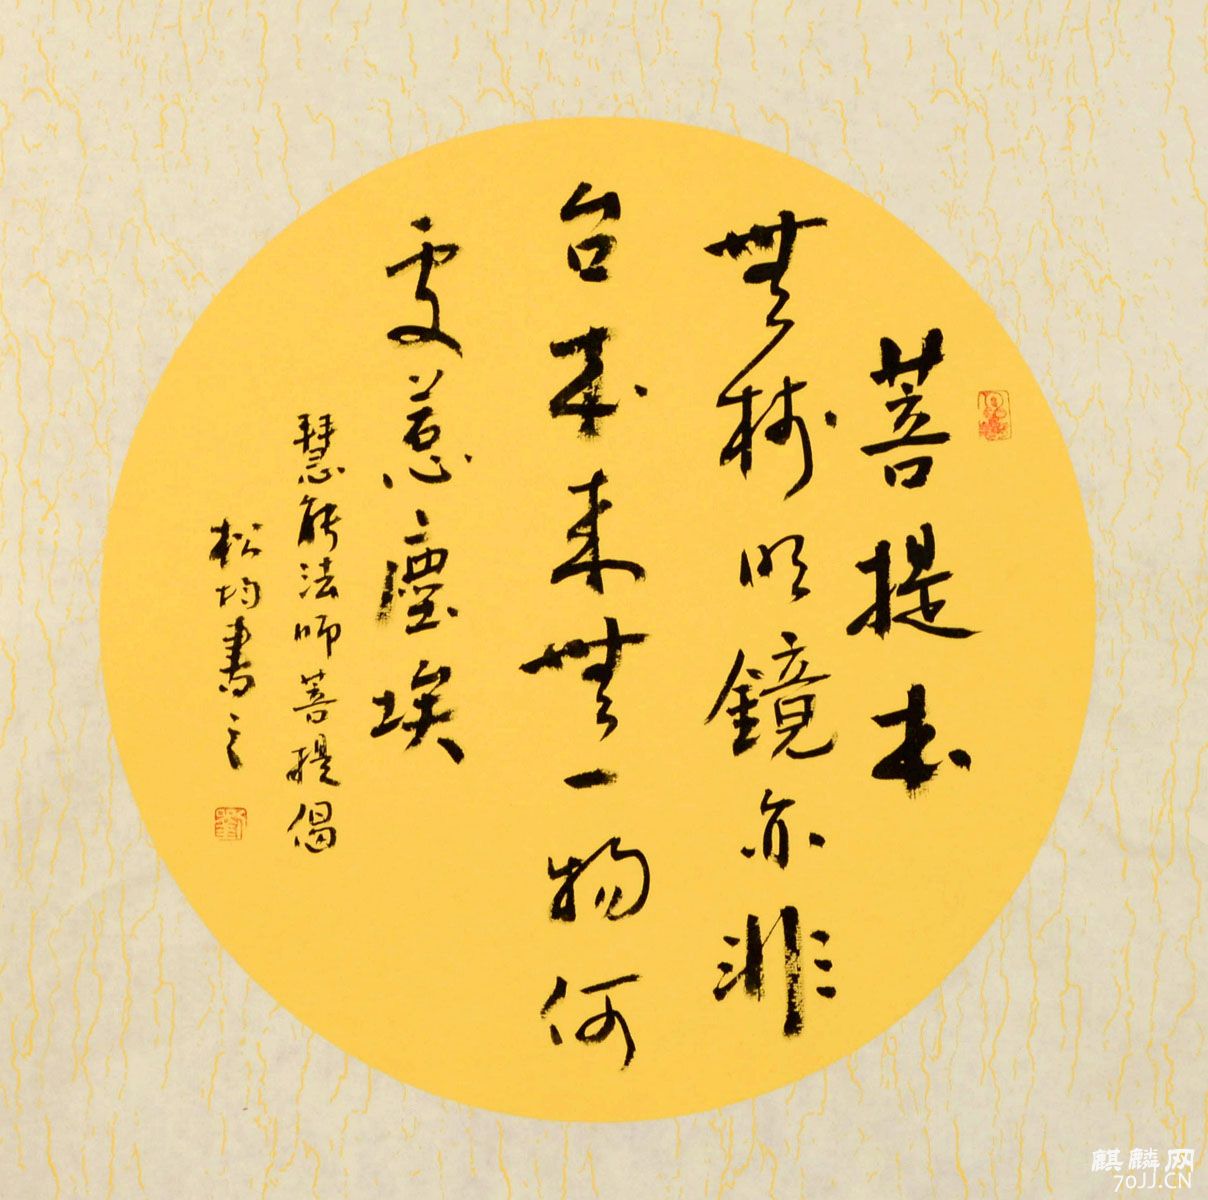 菩提本
無樹明鏡亦非
台本来無一物何
处惹塵埃
慧能法师菩提偈
松均書之
麒麟网
70JJ.CN